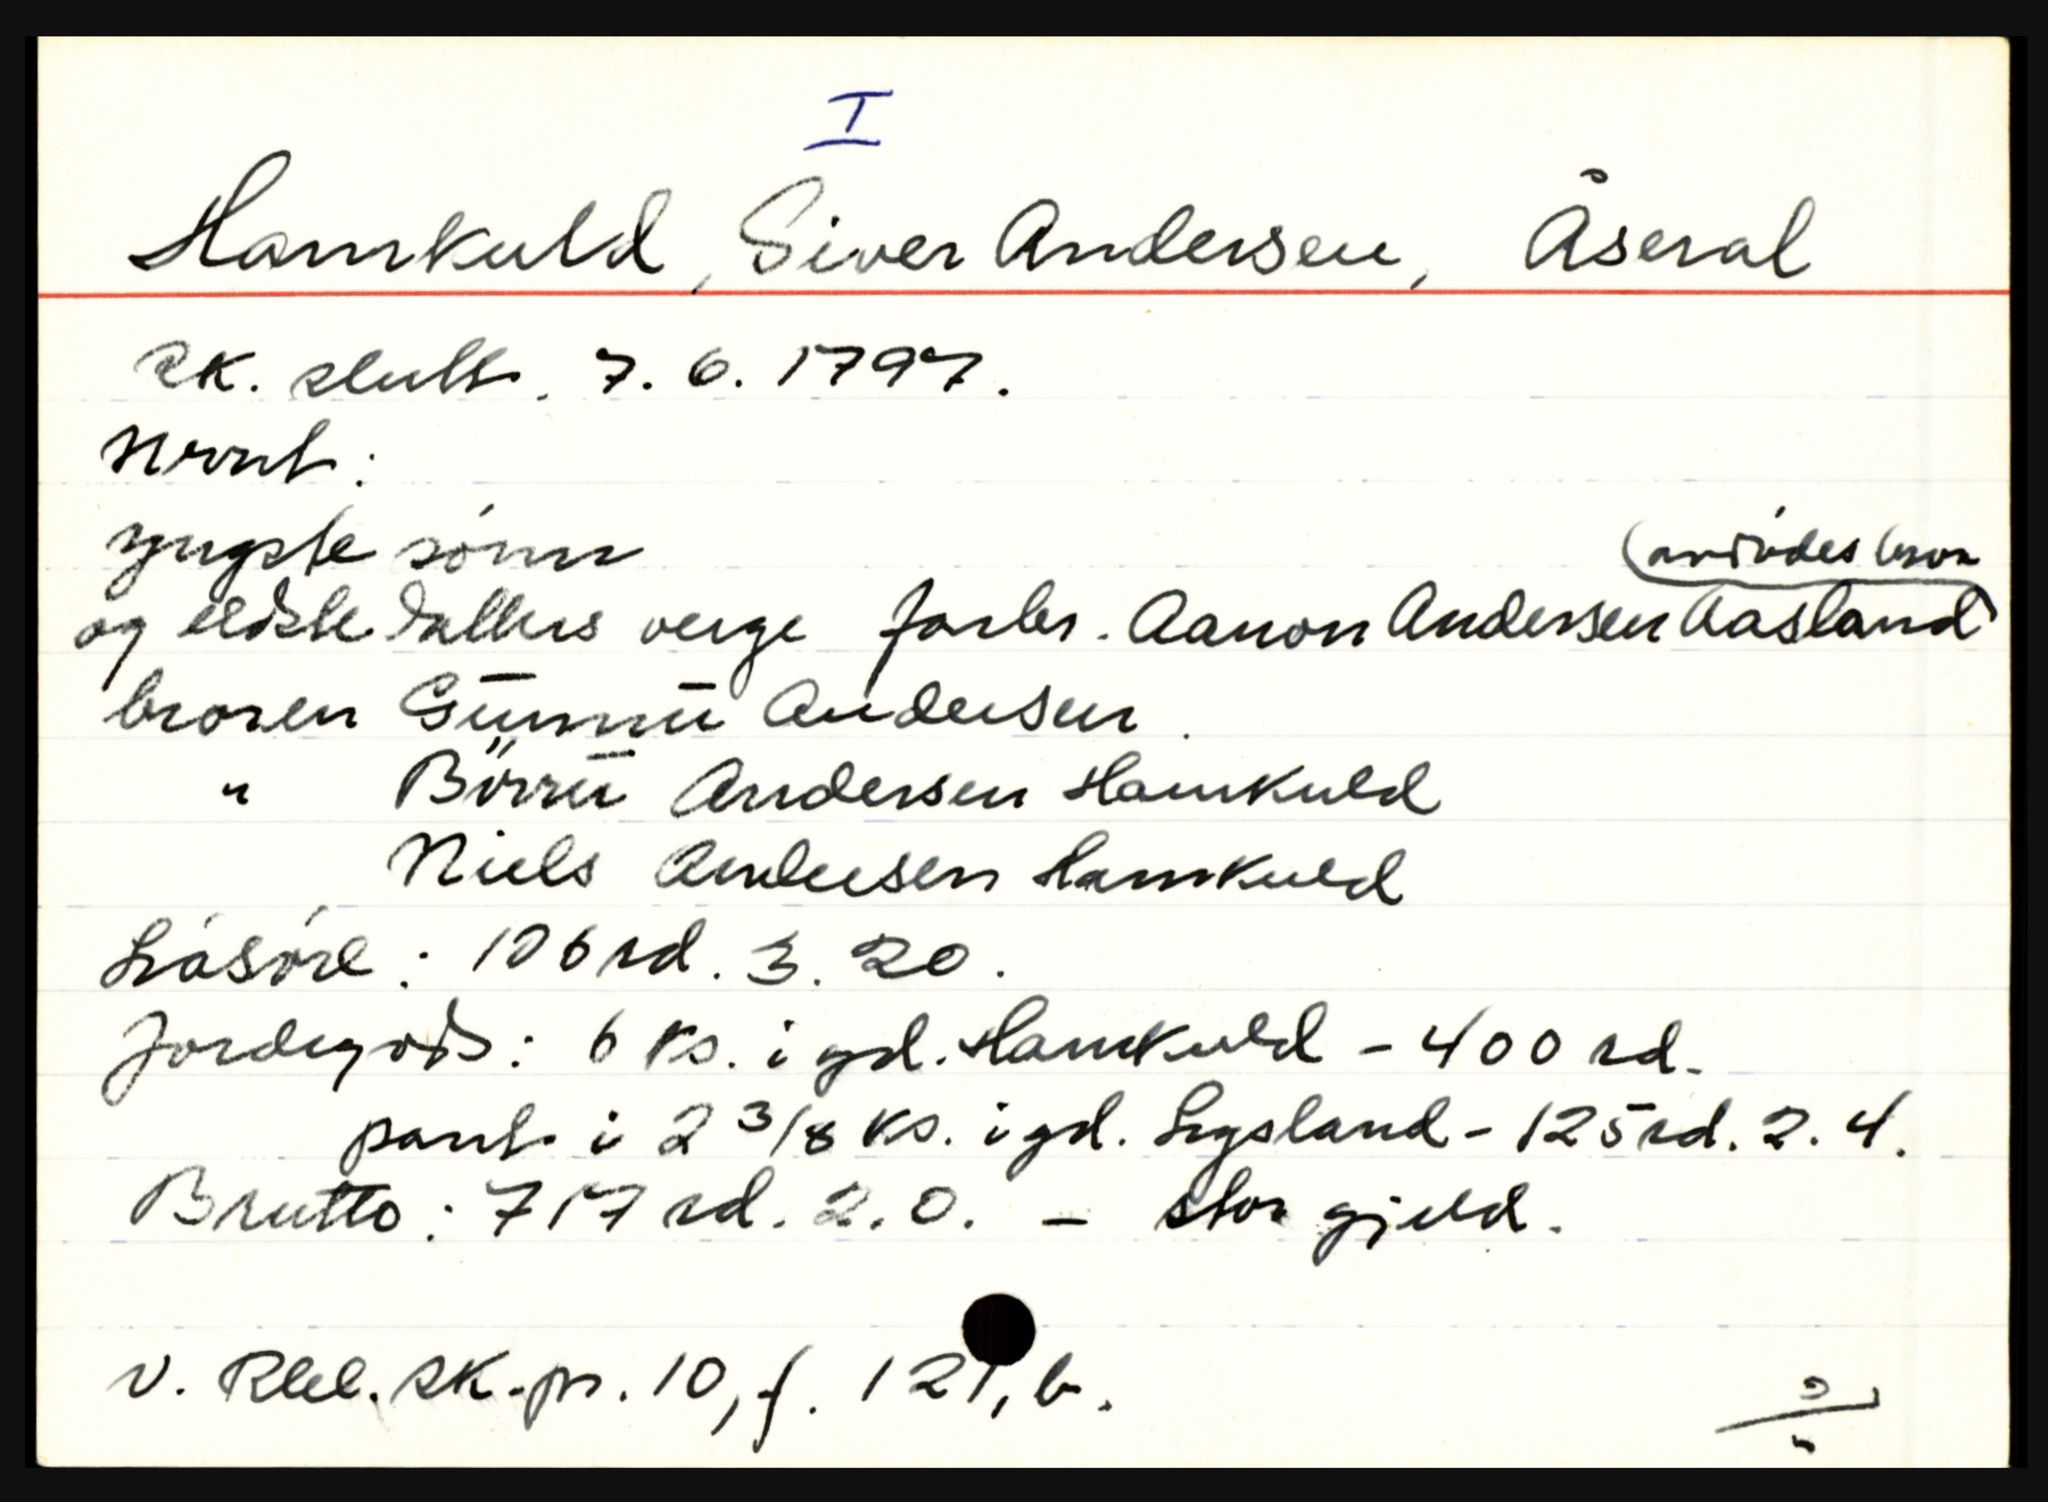 I
Hamkuld, Siver Andersen, Åseral
sk. slutt. 7.6.1797.
Nvnt:
yngste sønn (avdødes bror
og eldste datters verge farbr. Aanon Andersen Aasland)
broren Gūnnū Andersen.
" Börrū Andersen Hamkuld
Niels Andersen Hamkuld
Løsøre: 106 rd. 3. 20.
Jordegods: 6 ks. i gd. Hamkuld - 400 rd.
pant i 2 3/8 ks. i gd. Lygsland - 125 rd. 2. 4.
Brutto: 717 rd. 2.0. - stor gjeld.
v. Rbl. sk. pr. 10, f. 121, b.